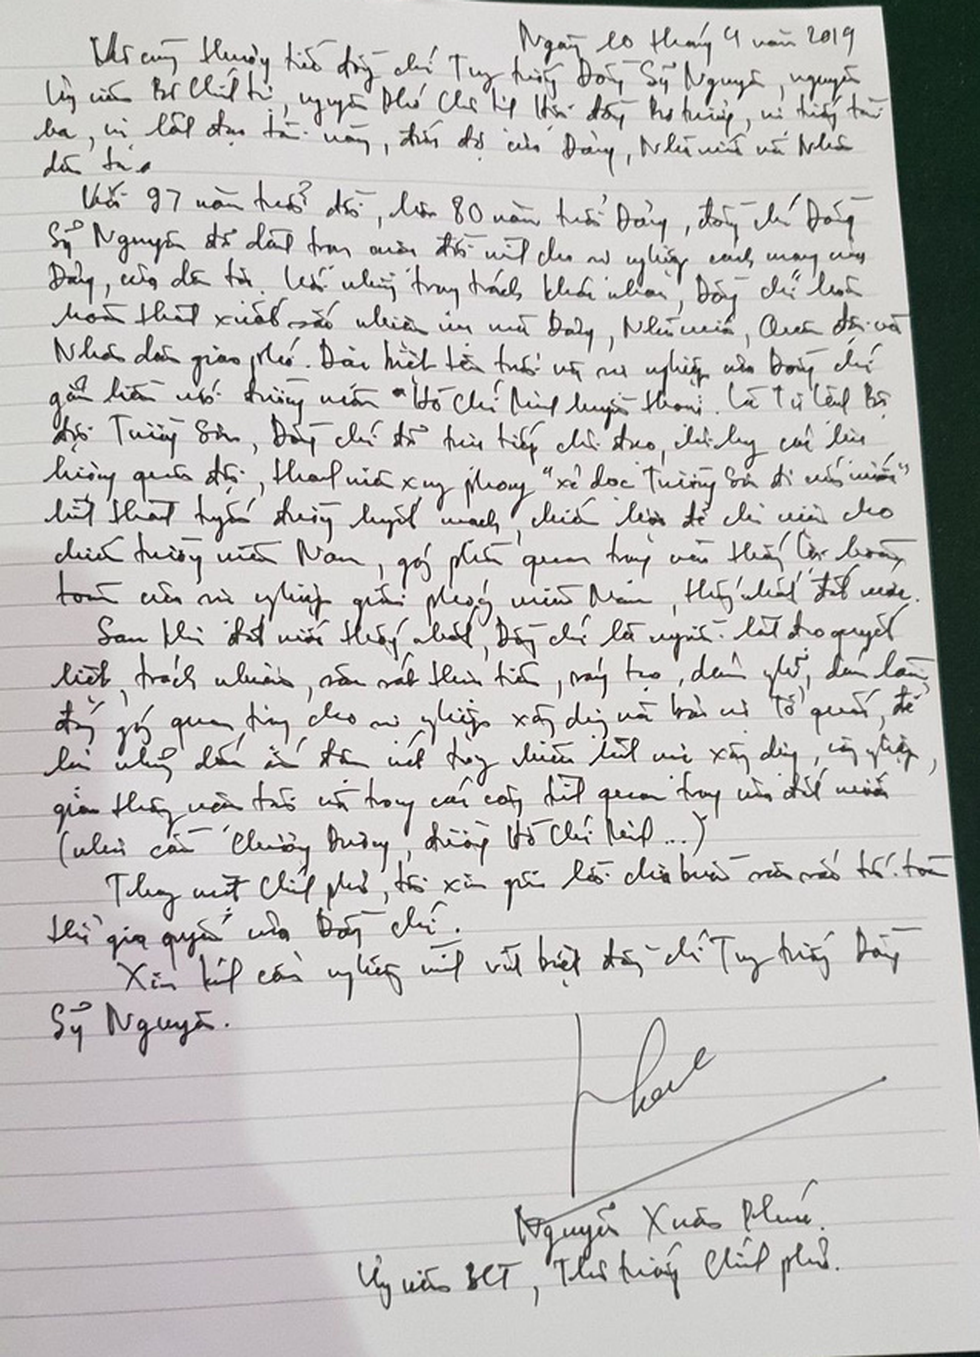 Ngày 10 tháng 4 năm 2019
Vô cùng thương tiếc đồng chí Trung tướng Đồng Sỹ Nguyên, nguyên
Ủy viên Bộ Chính trị, nguyên Phó Chủ tịch Hội đồng Bộ trưởng, vị tướng tài
ba, vị lãnh đạo tài năng, đức độ của Đảng, Nhà nước và Nhân
dân ta.
Với 97 năm tuổi đời, hơn 80 năm tuổi Đảng, đồng chí Đồng
Sỹ Nguyên đã dành trọn cuộc đời mình cho sự nghiệp cách mạng của
Đảng, của dân tộc. Với những trọng trách khác nhau, Đồng chí luôn
hoàn thành xuất sắc nhiệm vụ mà Đảng, Nhà nước, Quân đội và
Nhân dân giao phó. Đặc biệt tên tuổi và sự nghiệp của Đồng chí
gắn liền với đường mòn "Hồ Chí Minh huyền thoại. Là Tư lệnh Bộ
đội Trường Sơn, Đồng chí đã trực tiếp chỉ đạo, chỉ huy các lực
lượng quân đội, thanh niên xung phong "xẻ dọc Trường Sơn đi cứu nước"
hình thành tuyến đường huyết mạch, chiến lược để chi viện cho
chiến trường miền Nam, góp phần quan trọng vào thắng lợi hoàn
toàn của sự nghiệp giải phóng miền Nam, thống nhất đất nước.
Sau khi đất nước thống nhất, Đồng chí là người lãnh đạo quyết
liệt, trách nhiệm, sâu sát thực tiễn, sáng tạo, dám nghĩ, dám làm,
đóng góp quan trọng cho sự nghiệp xây dựng và bảo vệ Tổ quốc, để
lại những dấu ấn đậm nét trong nhiều lĩnh vực xây dựng, công nghiệp,
giao thông vận tải và trong các công trình quan trọng của đất nước
(như cầu Chương Dương, đường Hồ Chí Minh ...)
Thay mặt Chính phủ, tôi xin gửi lời chia buồn sâu sắc tới toàn
thể gia quyến của Đồng chí.
Xin kính cẩn nghiêng mình vĩnh biệt đồng chí Trung tướng Đồng
Sỹ Nguyên.
Nguyễn Xuân Phúc.
Ủy viên BCT, Thủ tướng Chính phủ.